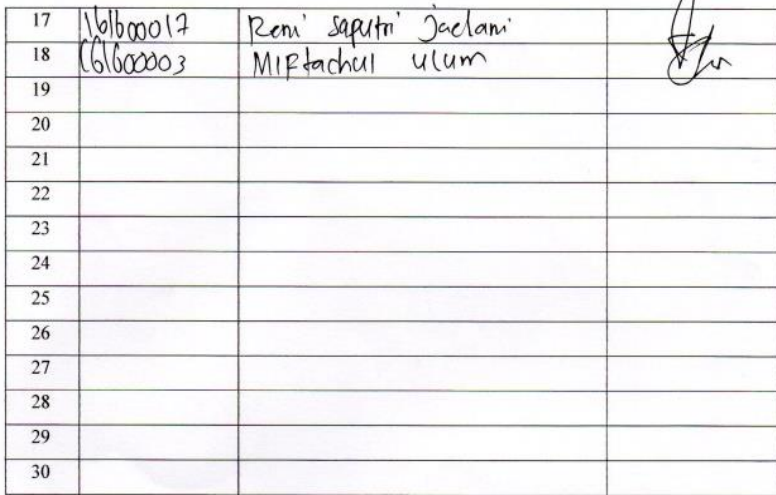 17 161600017 Reni Saputri Jaelani
18 161600003 Miftachul Ulum
19
20
21
22
23
24
25
26
27
28
29
30